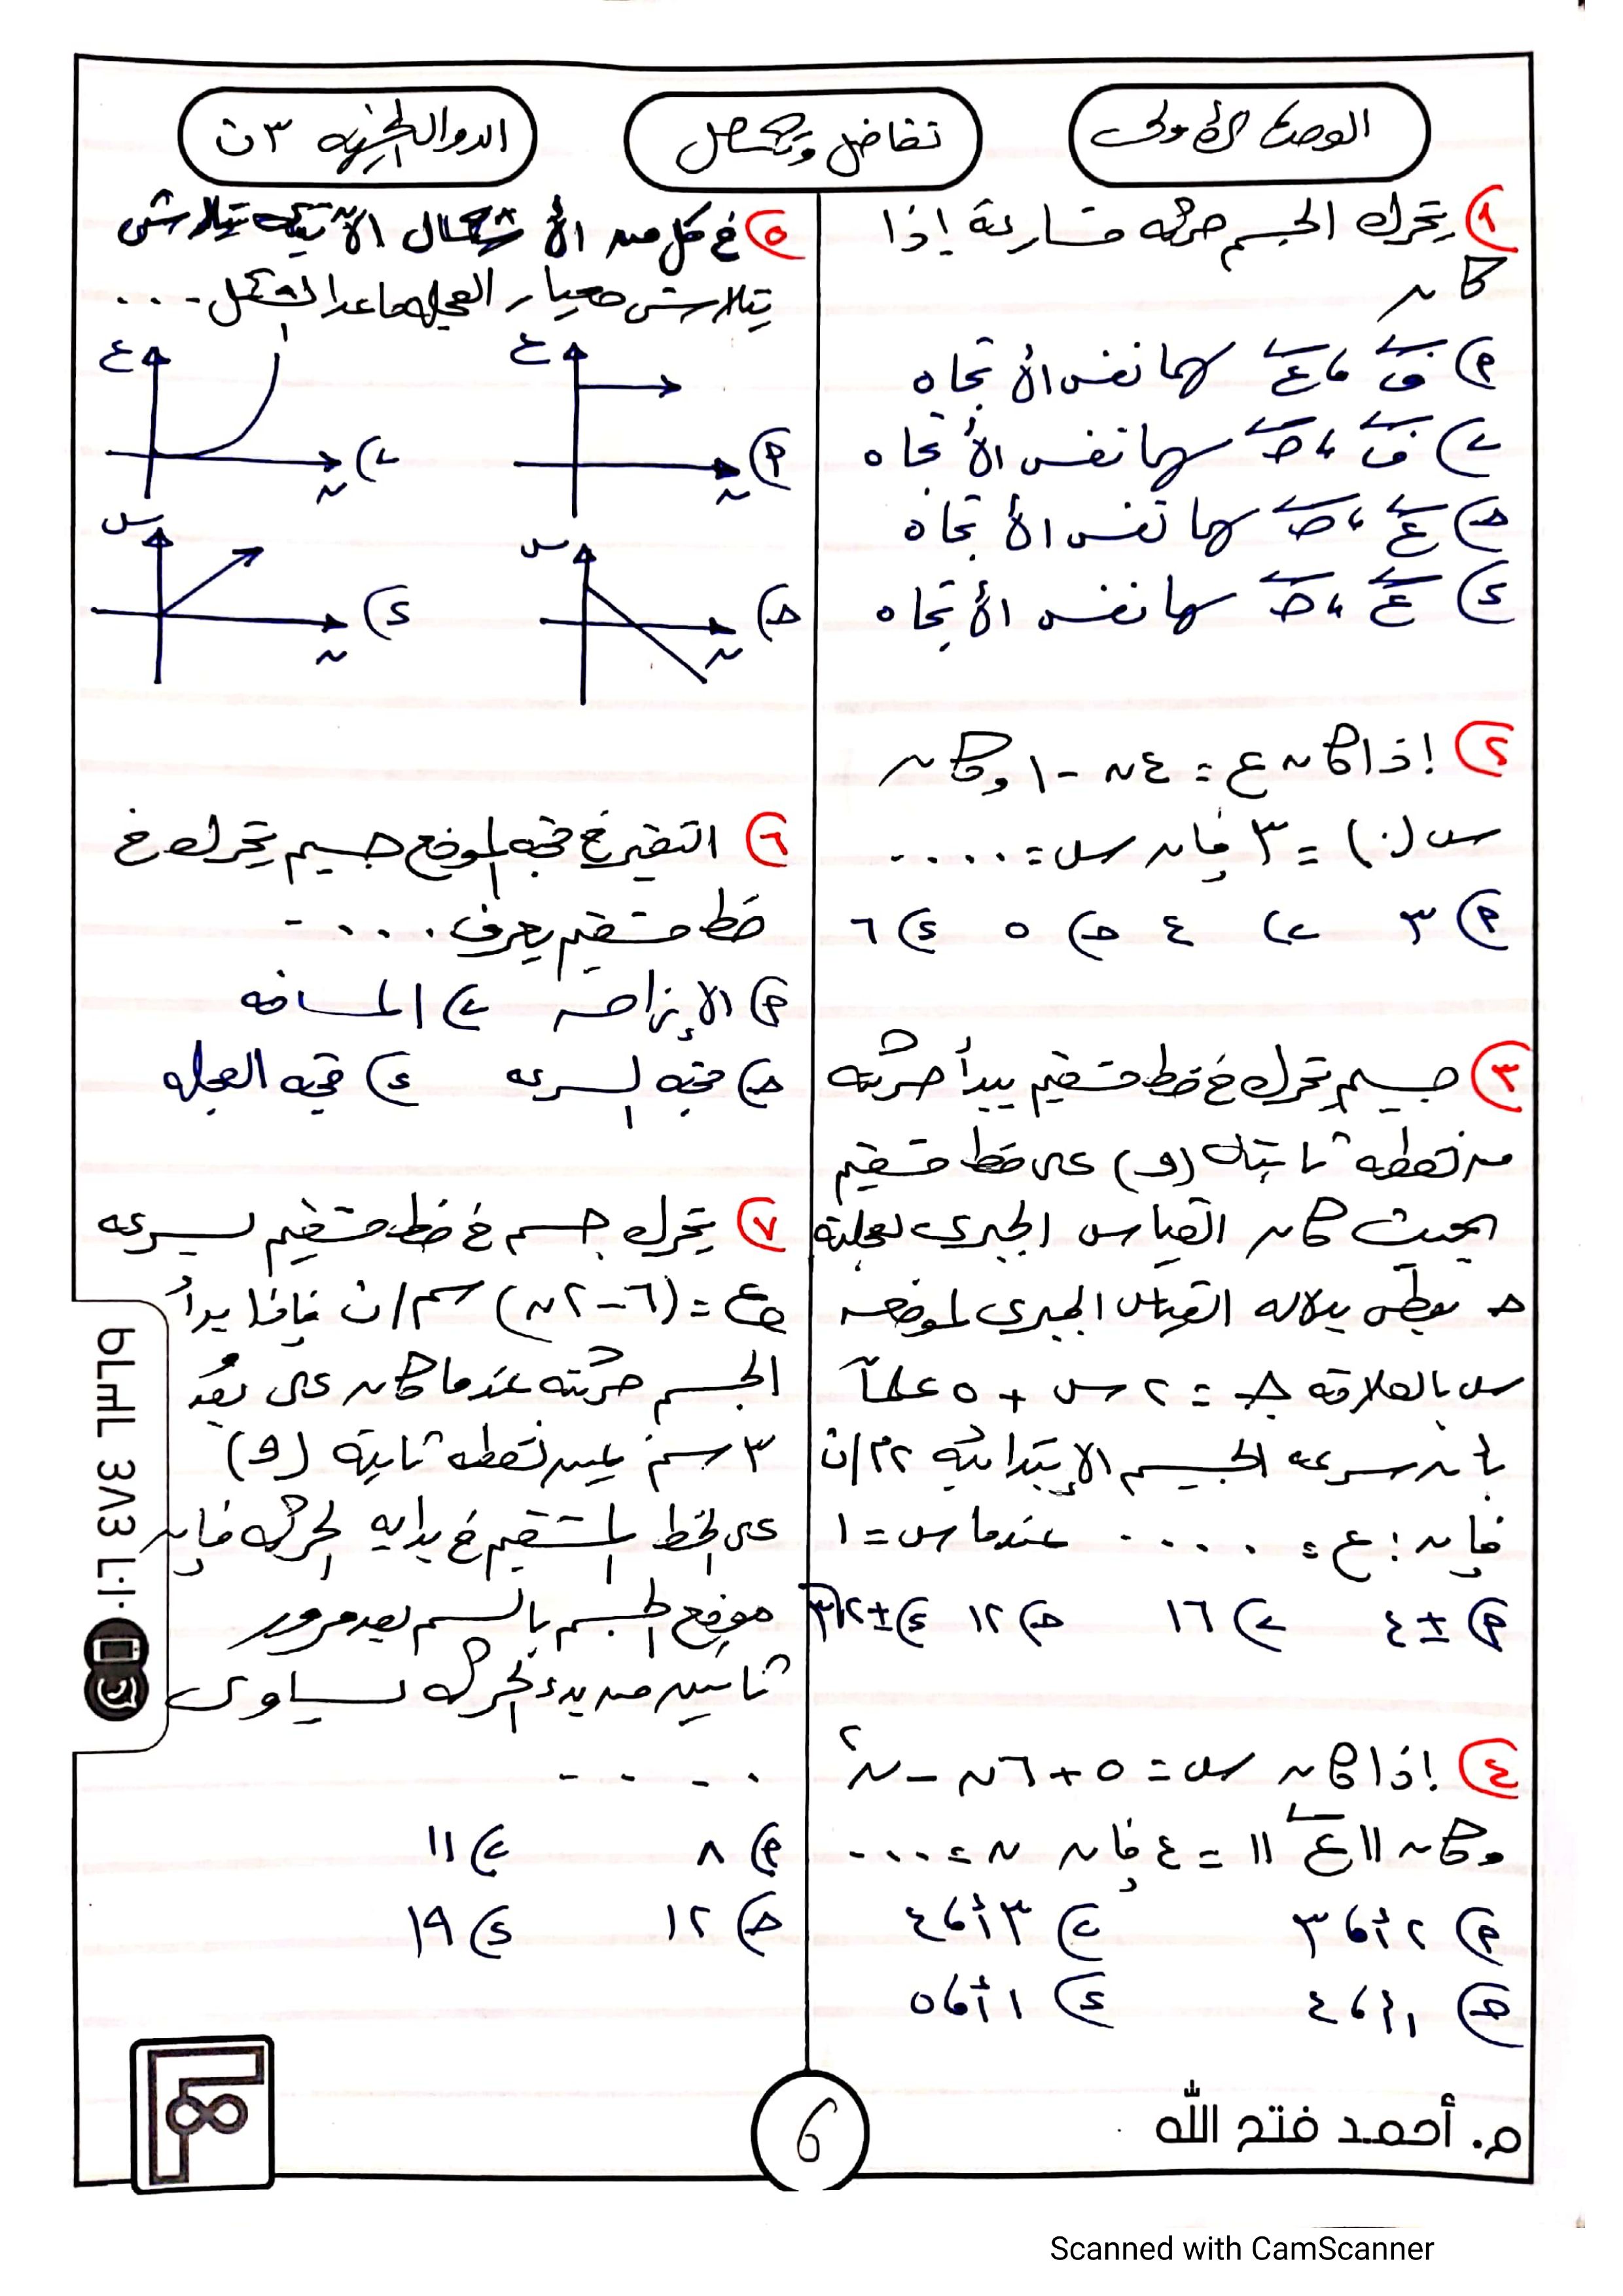 الوحدة الأولى
تفاضل وتكامل
الدوال الجبرية ٣ث
١) يتحرك الجسم حركة متسارعة إذا
كان
أ) ف ، ع لهما نفس الأتجاه
ب) ف ، حـ لهما نفس الأتجاه
حـ) ع ، حـ لهما نفس الأتجاه
ء) ع ، حـ لهما نفس الأتجاه
٢) إذا كان ع = ٤ن - ١ وكان
س(٠) = ٣ فإن س = .....
أ) ٣ ب) ٤ حـ) ٥ ء) ٦
٣) جسيم يتحرك في خط مستقيم يبدأ حركته
من نقطة ثابتة (و) على خط مستقيم
بحيث كان القياس الجبري لعجلته
حـ يعطى بدلالة القياس الجبري لموضعه
س بالعلاقة حـ = ٢س + ٥ علماً
بأن سرعة الجسيم الإبتدائية ٢م/ث
فإن : ع = .... عندما س = ١
أ) ± ٤ ب) ١٦ حـ) ١٢ ء) ± ٢√٣
٤) إذا كان س = ٥ + ٦ن - ن٢
وكان ||ع|| = ٤ فإن ن = ....
أ) ٢ أ، ٣ ب) ٣ أ، ٤
حـ) ١ أ، ٤ ء) ١ أ، ٥
٥) في كل من الأشكال الآتية يتلاشى
يتلاشى معيار العجلة ماعدا الشكل ....
ع
ن
أ)
ع
ن
ب)
س
ن
حـ)
س
ن
ء)
٦) التغير في متجه الموضع جسيم يتحرك في
خط مستقيم يعرف .....
أ) الإزاحة ب) المسافة
حـ) متجه السرعة ء) متجه العجلة
٧) يتحرك جسم في خط مستقيم بسرعة
ع = (٦ - ٢ن) سم/ث فإذا بدأ
الجسم حركته عندما كان على بعد
٣ سم يمين نقطة ثابتة (و)
على الخط المستقيم في بداية الحركة فإن
موضع الجسم بالسم بعد مرور
ثانيتين من بدء الحركة يساوى
....
أ) ٨ ب) ١١
حـ) ١٢ ء) ١٩
6
م. أحمد فتح الله
Scanned with CamScanner